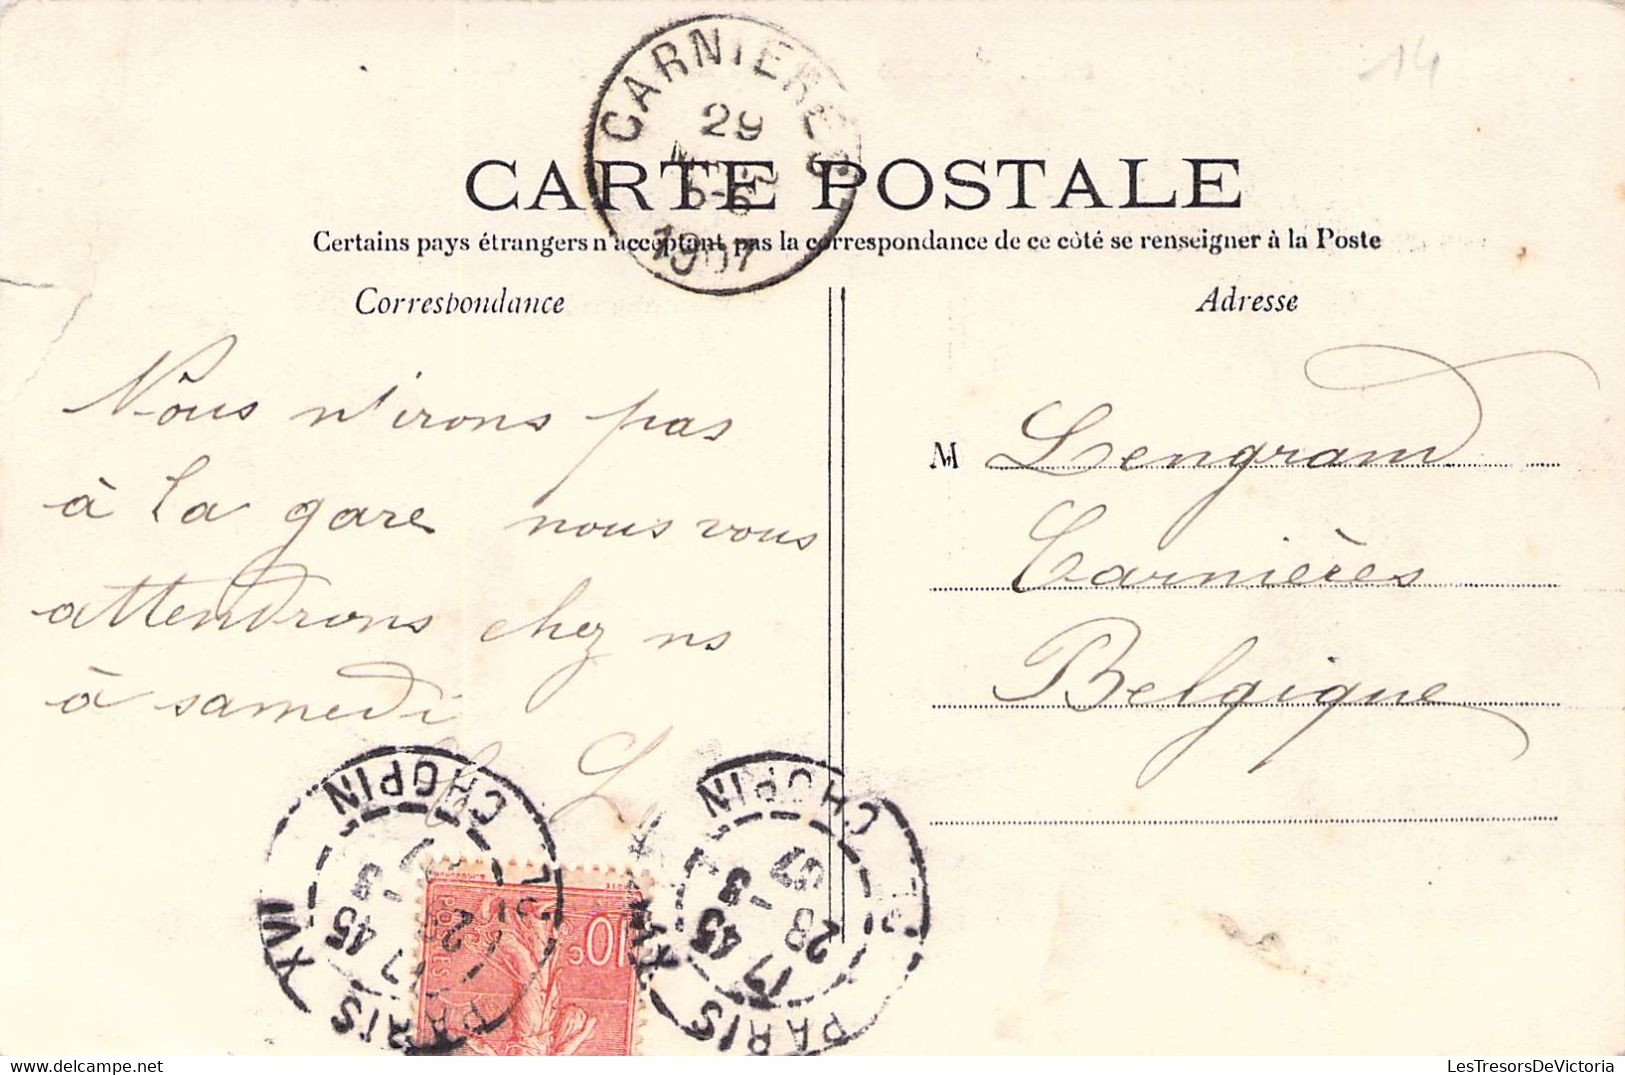 14
CARNIERES
29
1907
CARTE POSTALE
Certains pays étrangers n'acceptant pas la correspondance de ce côté se renseigner à la Poste
Correspondance
Adresse
Nous n'irons pas
à la gare nous vous
attendrons chez ns
à samedi
M Lengrand
Carnières
Belgique
PARIS XVI
17 45
28 - 5
07
CHOPIN
PARIS XVI
17 45
28 - 5
07
CHOPIN
10c
POSTES
LesTresorsDeVictoria